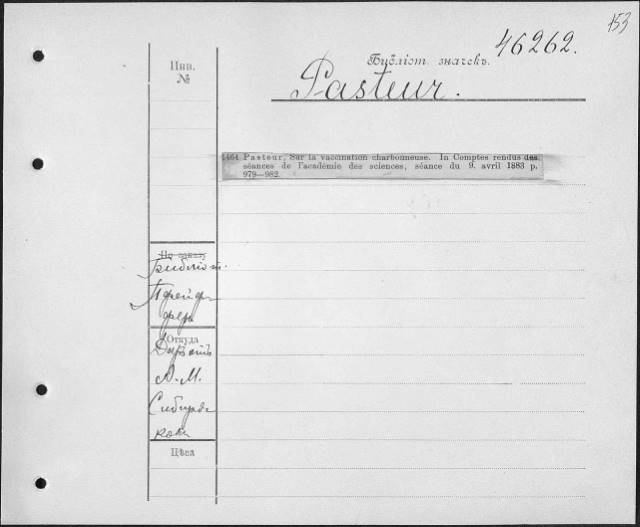 153
46262.
Бубліот. значекъ.
Pasteur.
Инв.
№
1464 Pasteur, Sur la vaccination charbonneuse. In Comptes rendus des
séances de l'académie des sciences, séance du 9. avril 1883 p.
979—982.
По заказу
Библіот.
Пфейф-
фера
Откуда
Даръ отъ
А. М.
Сибиряко-
кова
Цѣна